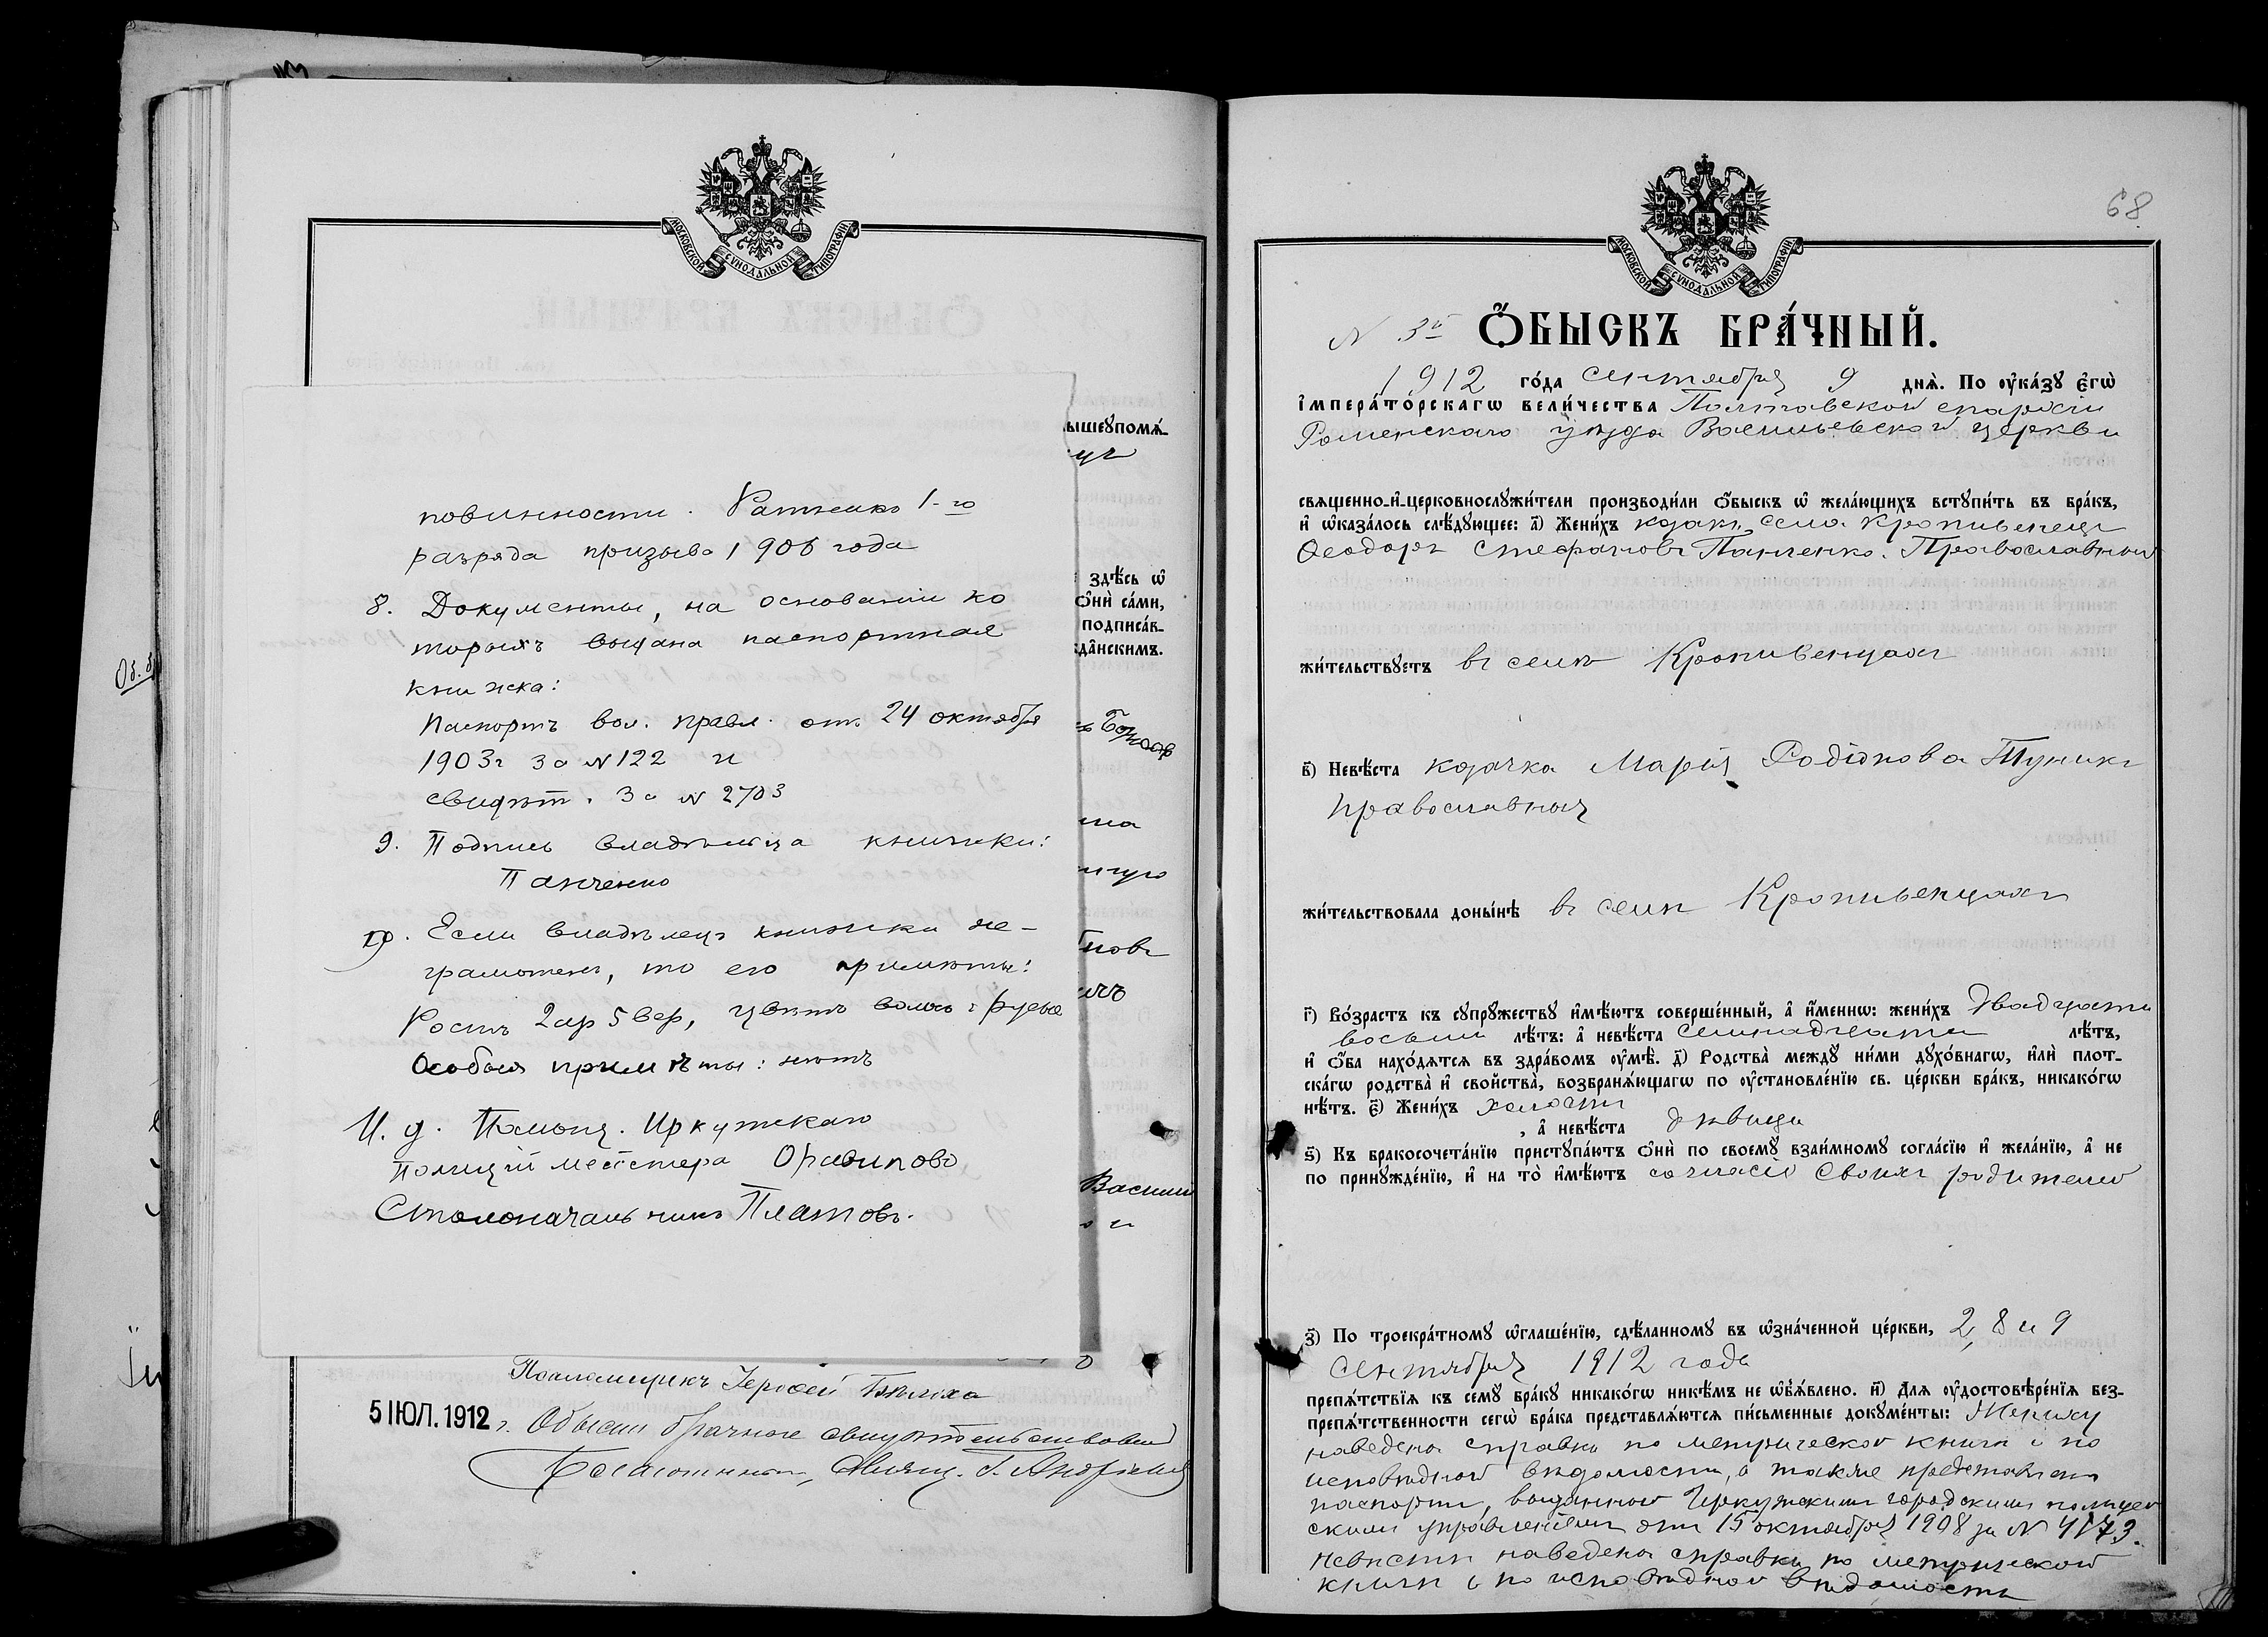 МОСКОВСКОЙ СѴНОДАЛЬНОЙ ТИПОГРАФІИ
повинности. Ратникъ 1-го
разряда призыва 1906 года
8. Документы, на основаніи ко
торыхъ выдана паспортная
книжка:
Паспортъ вол. правл. отъ 24 октября
1903г за № 122 и
свидѣт. за № 2703
9. Подпись владѣльца книжки:
Панченко
10. Если владѣлецъ книжки не-
грамотенъ, то его примѣты:
Ростъ 2 ар 5 вер, цвѣтъ волосъ: русые
Особыя примѣты: нѣтъ
И. д. Помощ. Иркутскаго
Полицій мейстера
Столоначальникъ Платовъ.
ышеꙋпомѧ́-
здѣ́сь ѡ҆
Ѻ҆нѝ са́ми,
подписа́в-
да́нскимъ.
Васили
Псаломщикъ Іерофей
5 ІЮЛ. 1912 г. Обыски брачные свидѣтельствовалъ
Благочинный, Свящ. Г.
68
МОСКОВСКОЙ СѴНОДАЛЬНОЙ ТИПОГРАФІИ
№ 35 Ѻ҆БЫСКЪ БРА́ЧНЫЙ.
1912 го́да сентября 9 днѧ̀. По ᲂу҆ка́зꙋ Є҆гѡ̀
І҆мпера́торскагѡ вели́чества Полтавской епархіи
Роменскаго уѣзда Васильевской церкви
свѧщенно-и҆-церковнослꙋжи́тели производи́ли ѻ҆́быскъ ѡ҆ жела́ющихъ встꙋпи́ть въ бра́къ,
и҆ ѡ҆каза́лось слѣ́дꙋющее: а҃) Жени́хъ козакъ села Кропивенецъ
Ѳеодоръ Стефановъ Панченко. Православный
жи́тельствꙋетъ въ селѣ Кропивенцахъ
в҃) Невѣ́ста козачка Марія Родіонова Туникъ
православная
жи́тельствовала доны́нѣ въ селѣ Кропивенцахъ
г҃) Во́зрастъ къ сꙋпрꙋ́жествꙋ и҆мѣ́ютъ соверше́нный, а҆ и҆́менно: жени́хъ двадцати
восьми лѣ́тъ: а҆ невѣ́ста семнадцати лѣ́тъ,
и҆ ѻ҆́ба нахо́дѧтсѧ въ здра́вомъ ᲂу҆мѣ̀. д҃) Родства̀ междꙋ̀ ни́ми дꙋхо́внагѡ, и҆лѝ плот-
ска́гѡ родства̀ и҆ сво́йства̀, возбранѧ́ющагѡ по ᲂу҆становле́нїю св. це́ркви бра́къ, никако́гѡ
нѣ́тъ. є҃) Жени́хъ холостъ
, а҆ невѣ́ста дѣвица
ѕ҃) Къ бракосочета́нїю пристꙋпа́ютъ ѻ҆нѝ по своемꙋ̀ взаи́мномꙋ согла́сїю и҆ жела́нїю, а҆ не
по принꙋжде́нїю, и҆ на то̀ и҆мѣ́ютъ согласіе своихъ родителей
з҃) По троекра́тномꙋ ѡ҆глаше́нїю, сдѣ́ланномꙋ въ ѡ҆зна́ченной це́ркви, 2, 8 и 9
сентября 1912 года
препѧ́тствїѧ къ семꙋ̀ бра́кꙋ никако́гѡ никѣ́мъ не ѡ҆б̾ѧ́влено. и҃) Длѧ ᲂу҆достовѣре́нїѧ без-
препѧ́тственности сегѡ̀ бра́ка представлѧ́ютсѧ пи́сьменные докꙋме́нты: Жениху
наведена справка по метрической книгѣ и по
исповѣдной вѣдомости, а также представленъ
паспортъ, выданный Иркутскимъ городскимъ полицей
скимъ управленіемъ отъ 15 октября 1908 за № 4173.
Невѣстѣ наведена справка по метрической
книгѣ и по исповѣдной вѣдомости